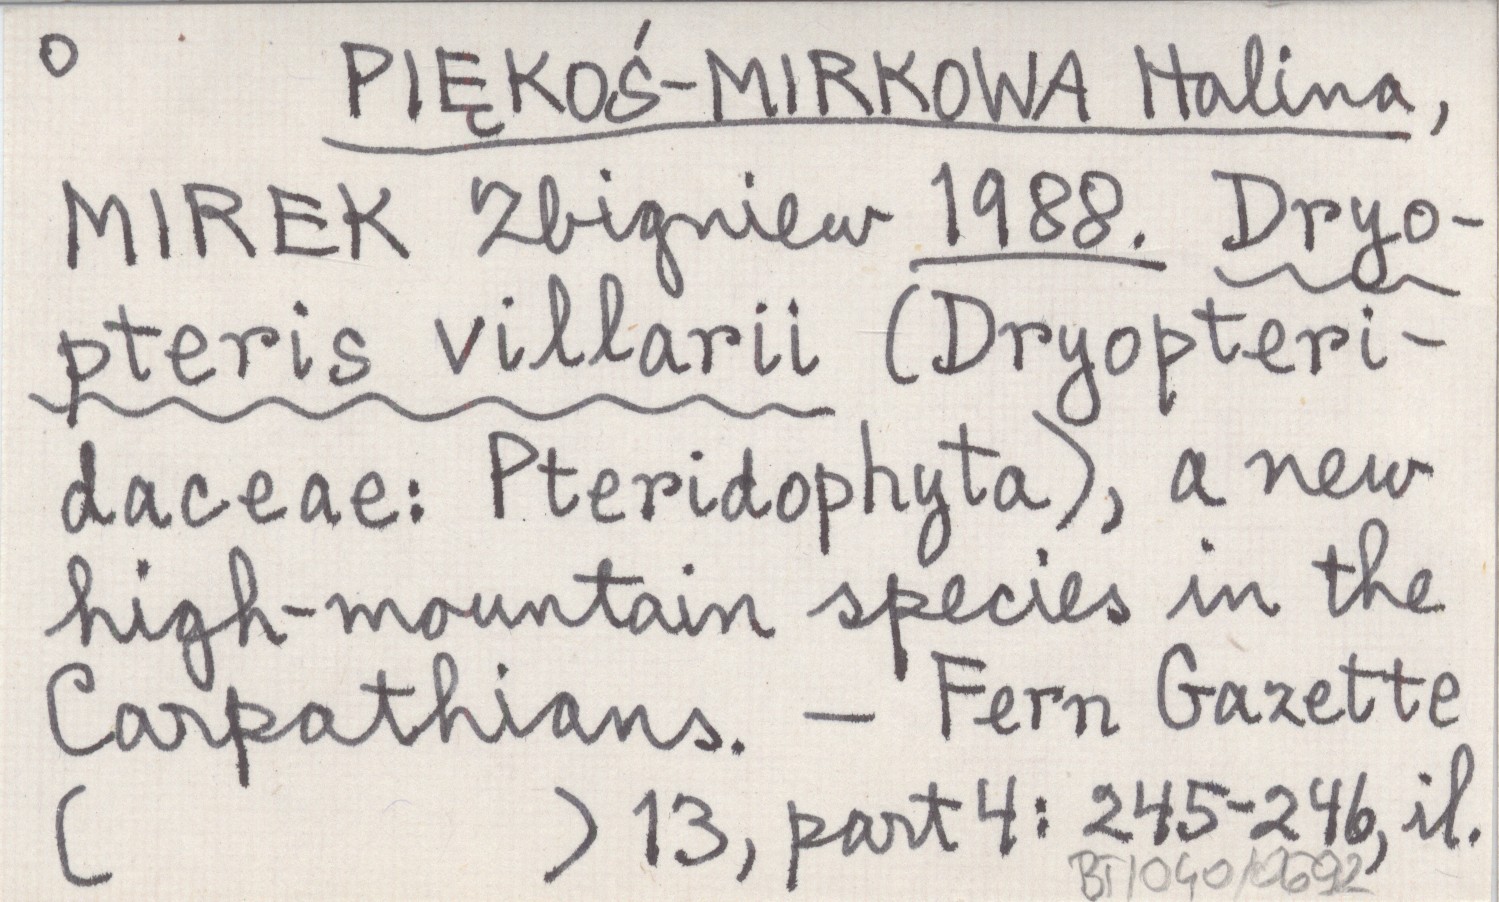 o PIĘKOŚ-MIRKOWA Halina,
MIREK Zbigniew 1988. Dryo-
pteris villarii (Dryopteri-
daceae: Pteridophyta), a new
high-mountain species in the
Carpathians. — Fern Gazette
( ) 13, part 4: 245-246, il.